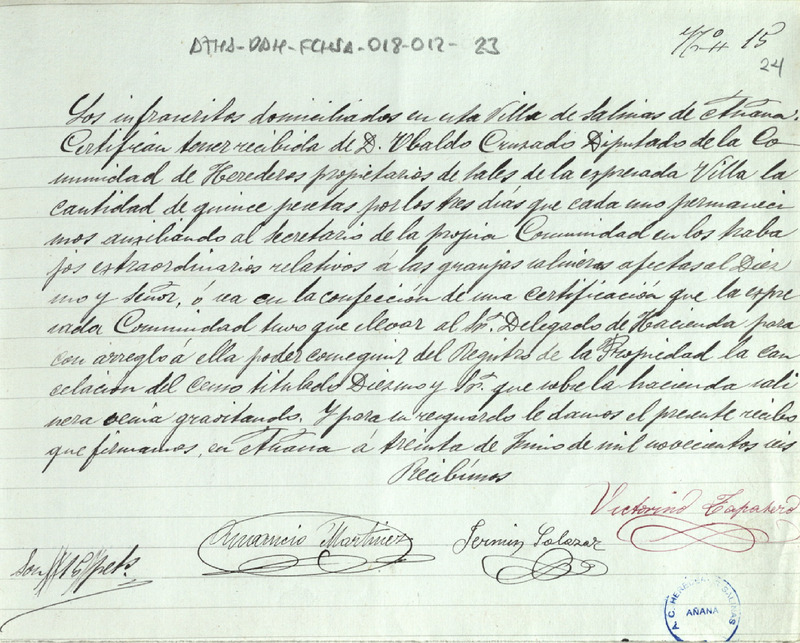 ATHA-DAH-FCHSA-018-012- 23
Nº 15
24
Los infrascritos domiciliados en esta Villa de Salinas de Añana:
Certifican tener recibida de D. Ubaldo Cruzado Diputado de la Co-
munidad de Herederos propietarios de sales de la expresada Villa la
cantidad de quince pesetas por los tres días que cada uno permaneci
mos auxiliando al secretario de la propia Comunidad en los traba
jos extraordinarios relativos á las granjas salineras afectas al Diez
mo y Señor, ó sea en la confección de una certificación que la expre
sada Comunidad tuvo que llevar al Sr. Delegado de Hacienda para
con arreglo á ella poder conseguir del Registro de la Propiedad la can
celacion del censo titulado Diezmo y Sr. que sobre la hacienda sali
nera venía gravitando. Y para su resguardo le damos el presente recibo
que firmamos, en Añana á treinta de Junio de mil novecientos seis
Recibímos
Victorino Zapatero
Amancio Martinez
Fermin Salazar
Son // 15 // pets.
A. C. HEREDEROS SALINAS
AÑANA